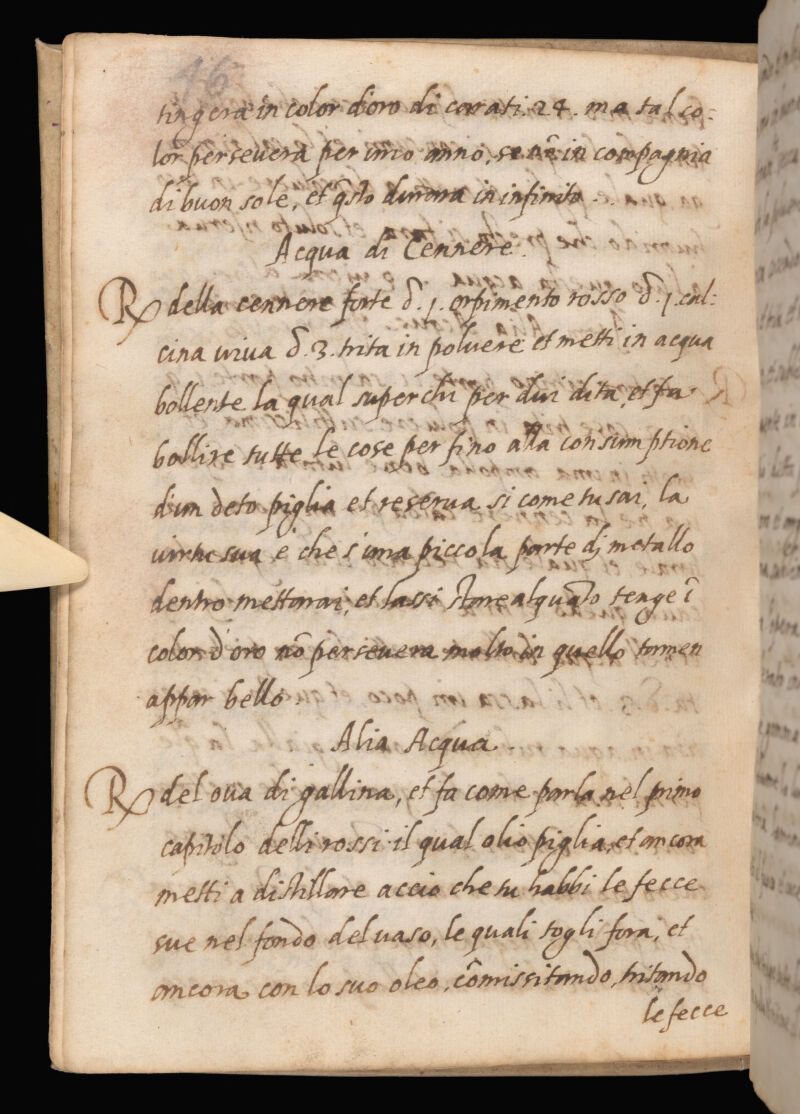 46
tingerà in color d'oro di carati 24. ma tal co:
lor persevera per unò anno, se nō in compagnia
di buon sole, et q̄sto durara in infinito.
Acqua di Cennere.
℞ della cennere forte đ. j. orpimento rosso đ. j. cal:
cina viva đ. 3. trita in polvere et metti in acqua
bollente la qual superchi per dui dita, et fa
bollire tutte le cose per fino alla consumptione
d'un deto piglia et reserua si come tu sai, la
virtu sua è che s'una piccola parte dj metallo
dentro metterai, et lassi stare alquāto tenge ī
color d'oro nō persevera molto in quello tamen
appar bello.
Alia Acqua.
℞ del ova di gallina, et fa come parla nel primo
capitolo delli rossi il qual olio piglia, et ancora
metti a distillare acciò che tu habbi le fecce
sue nel fondo del uaso, le quali togli fora, et
ancora con lo suo oleo, cōmissitando, tritando
le fecce